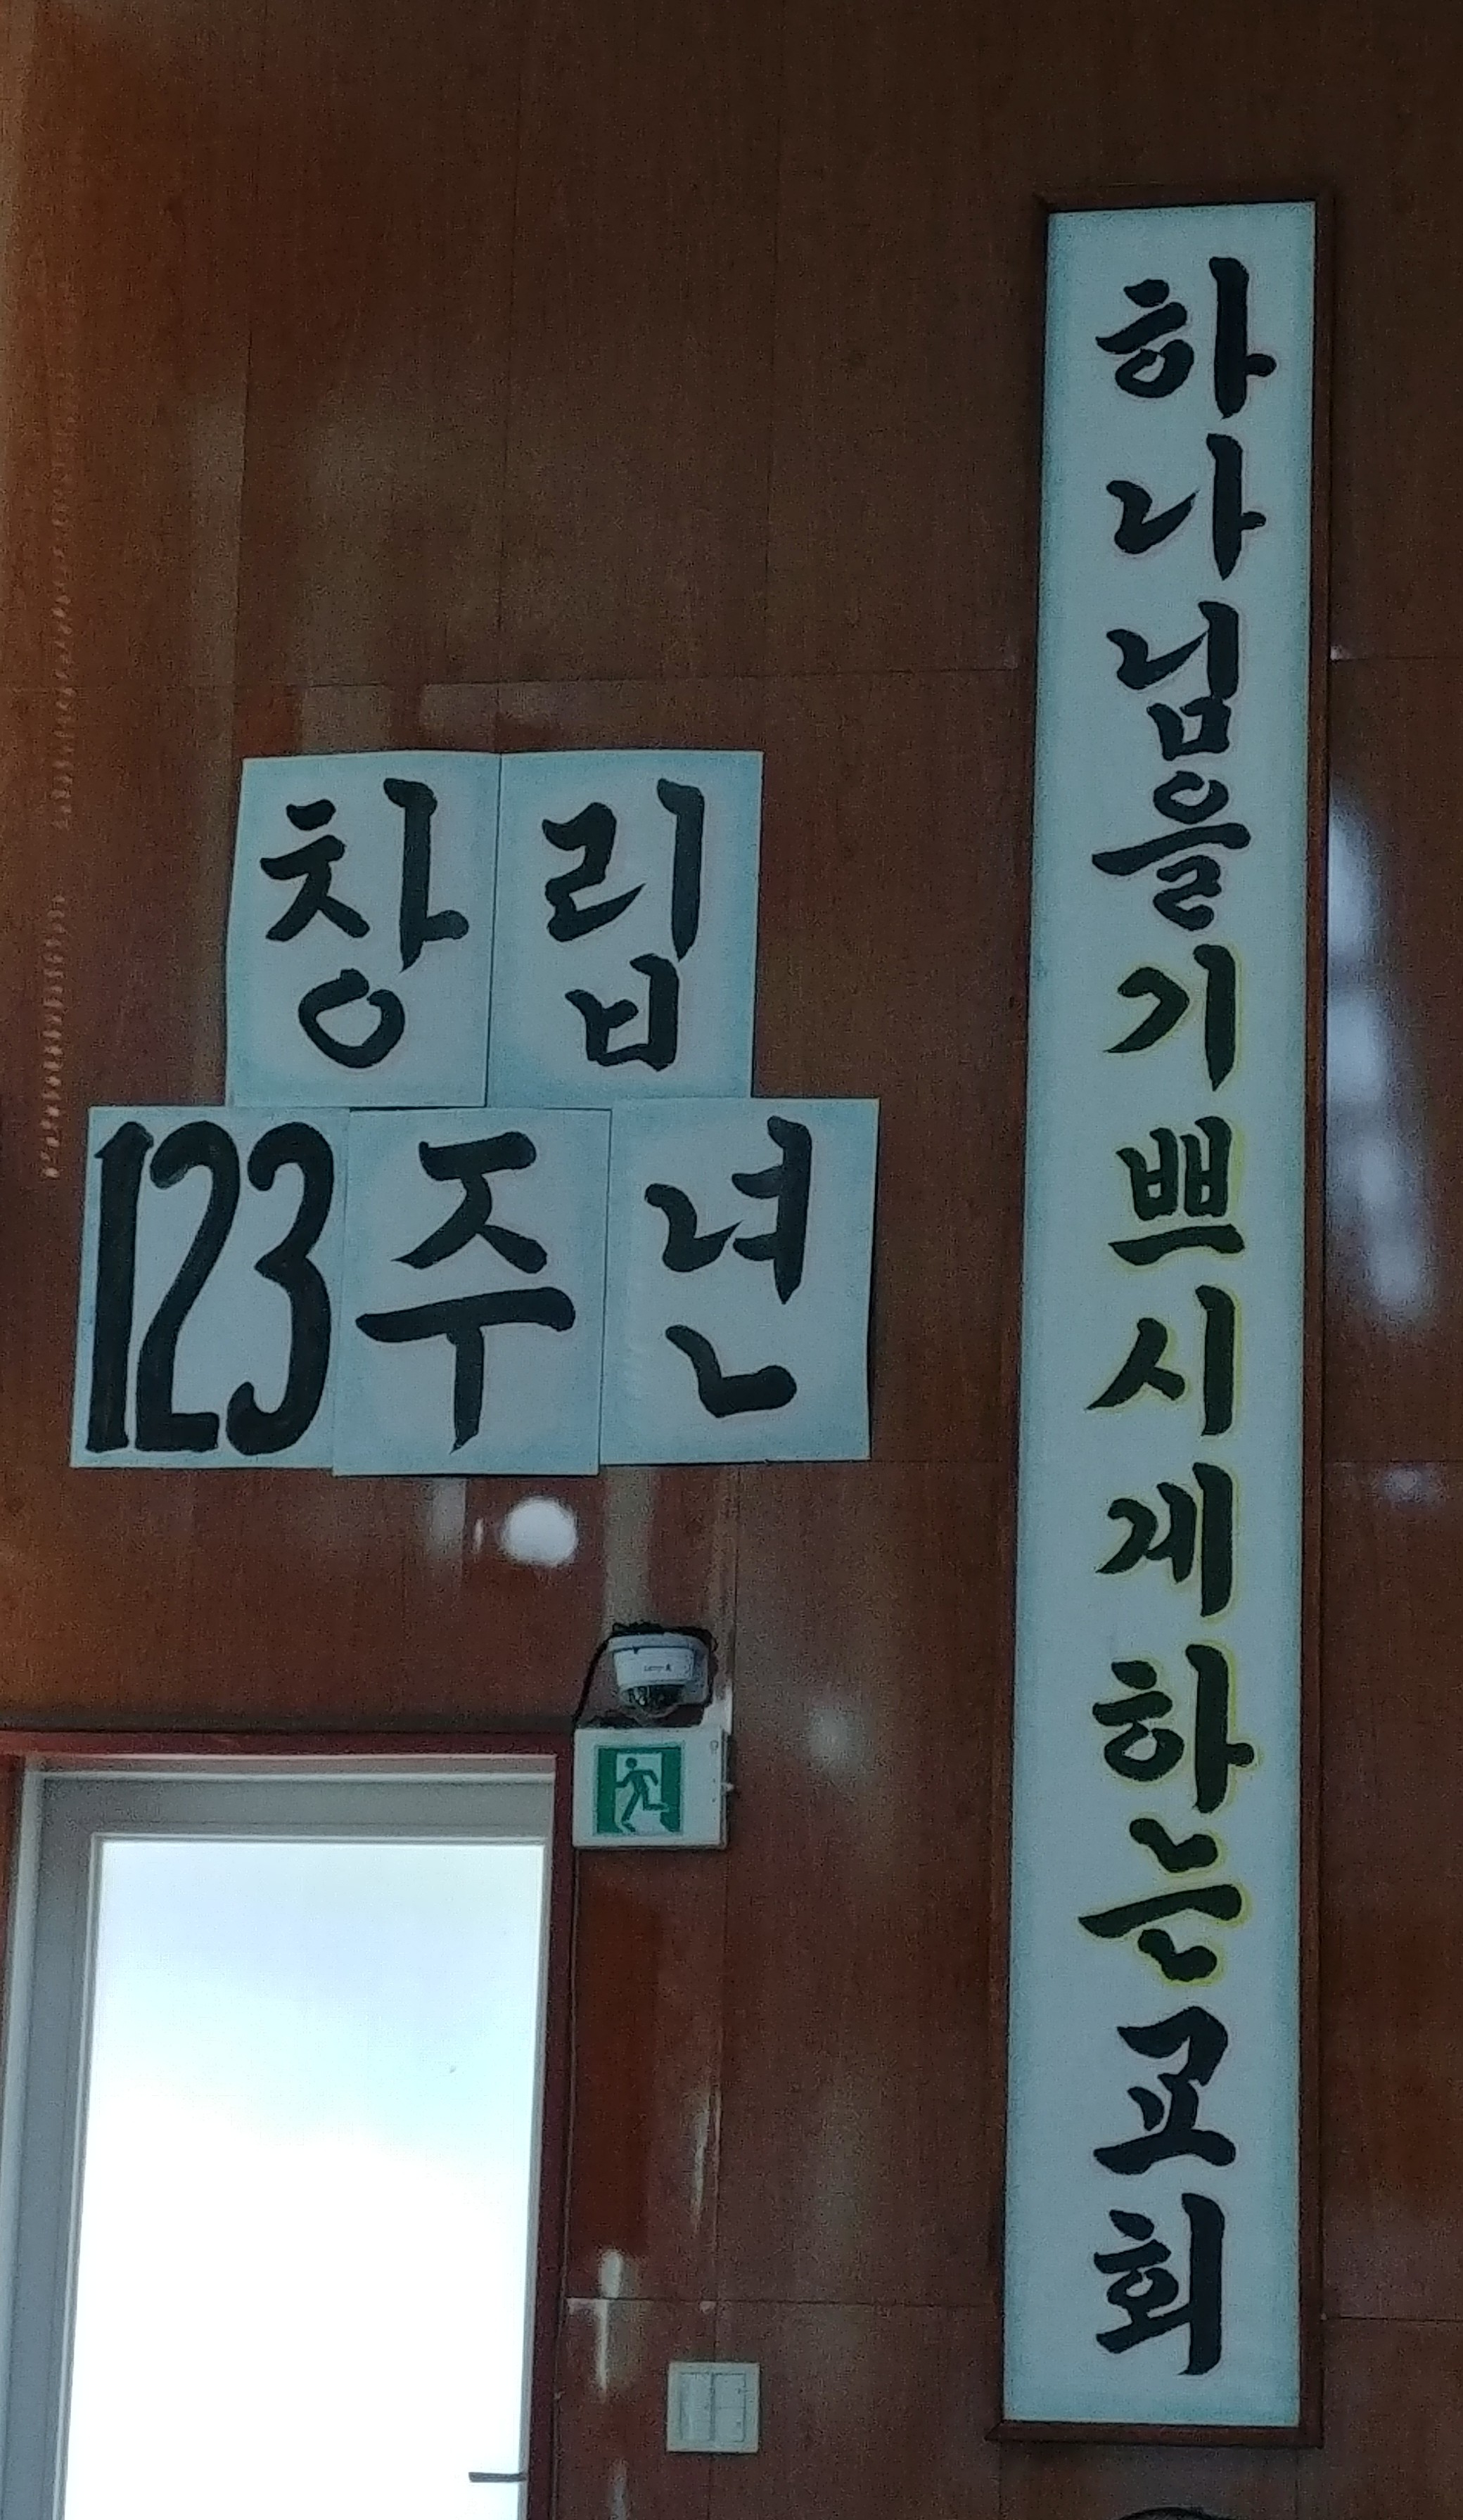 창립
123주년
하나님을기쁘시게하는교회